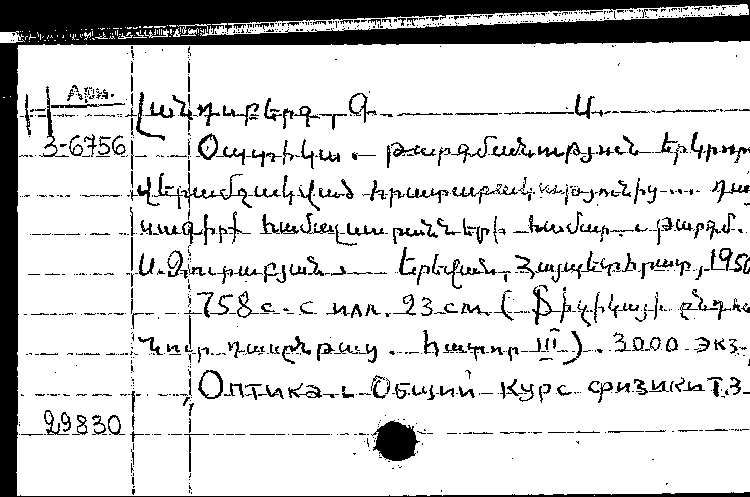 Арм.
Լանդսբերգ, Գ. Ս.
3-6756
Օպտիկա. թարգմանություն երկրոր
վերամշակված հրատարակությունից... դա
սագիրք համալսարանների համար. թարգմ.
Երևան, Հայպետհրատ, 195
758 с. с илл. 23 см. (Ֆիզիկայի ընդհա
նուր դասընթաց. հատոր III). 3000 экз.
Оптика. Общий курс физики Т.3
29830